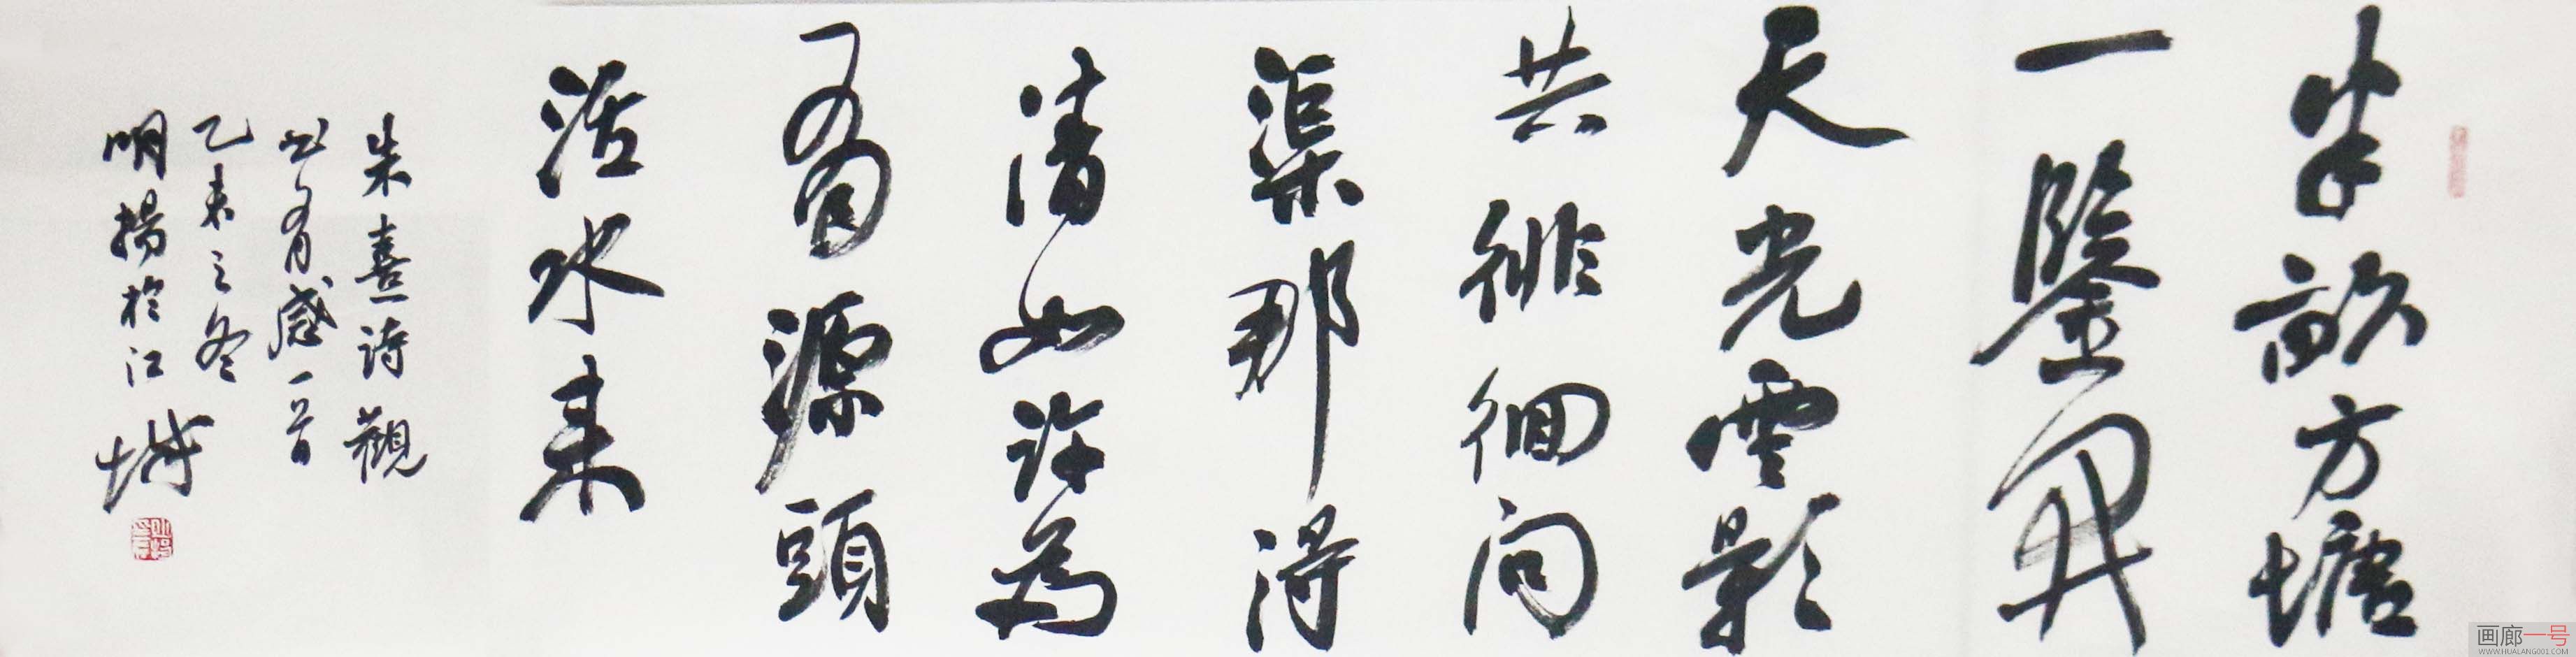 半畝方塘
一鑒開
天光雲影
共徘徊问
渠那得
清如許為
有源頭
活水来
朱熹诗觀
书有感一首
乙未之冬
明揚於江城
画廊一号
WWW.HUALANG001.COM